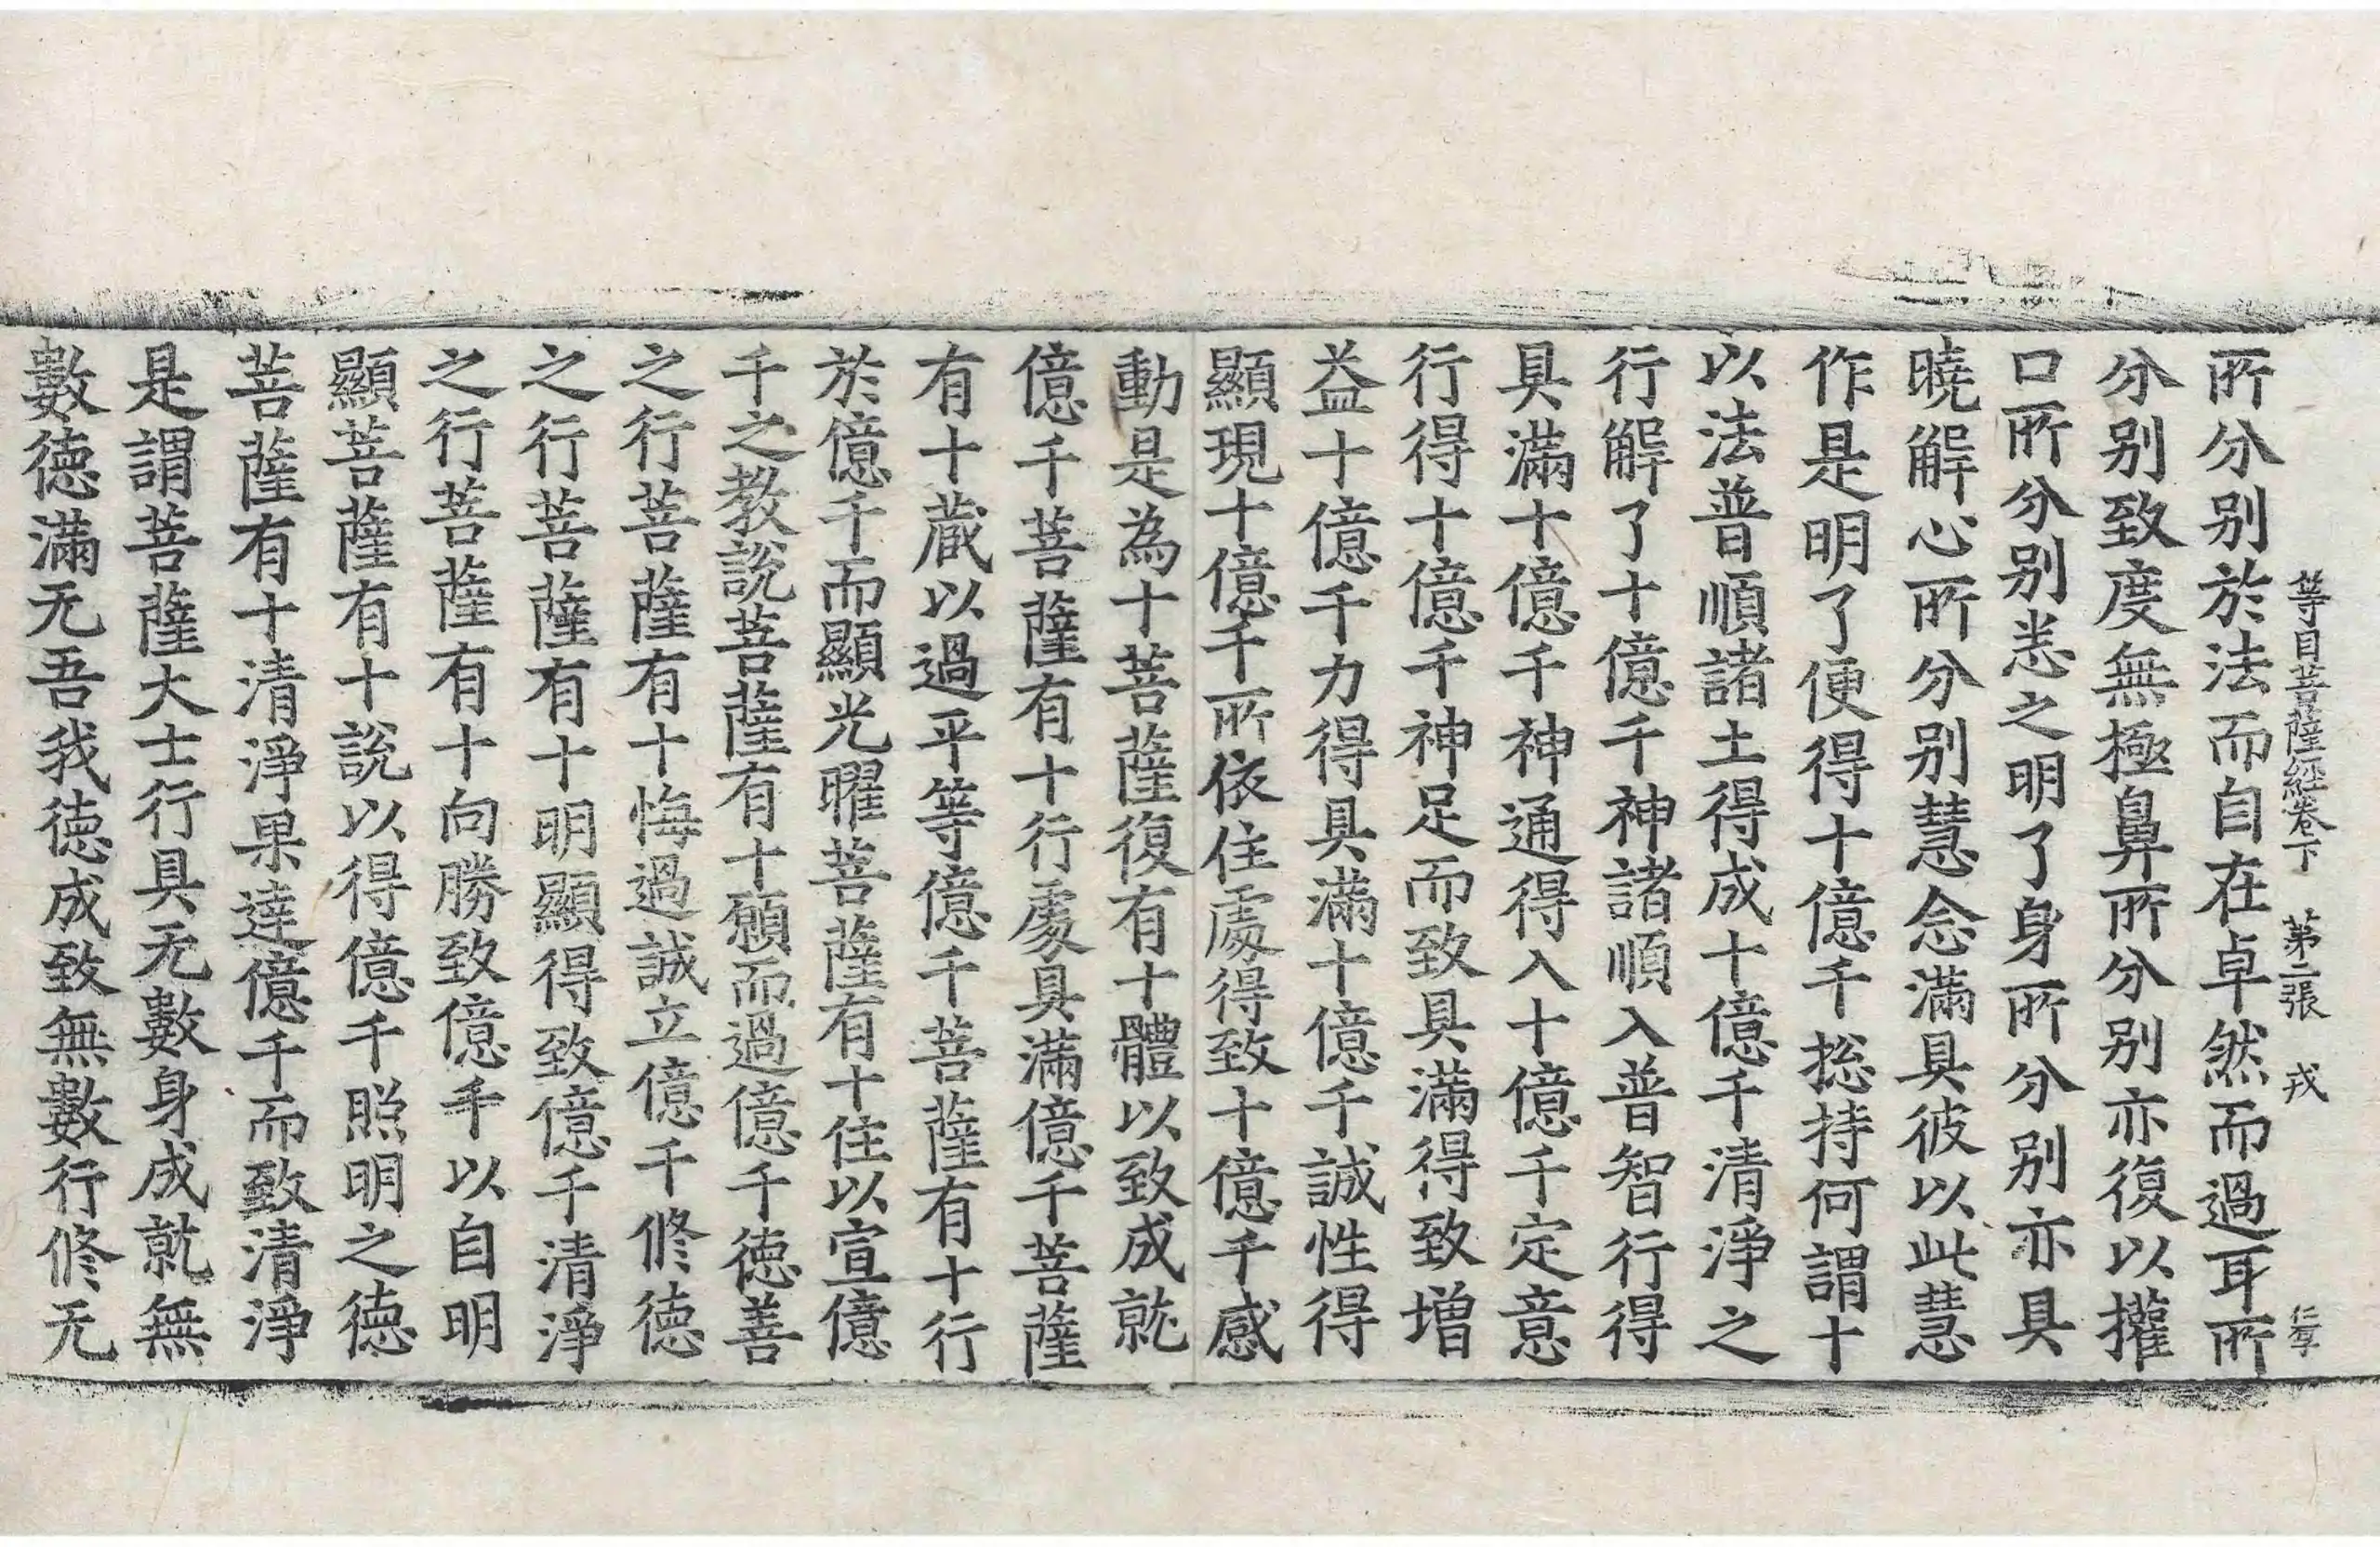 等目菩薩經卷下 第二張 戎 仁孚
所分别於法而自在卓然而過耳所
分别致度無極鼻所分别亦復以攉
口所分别悉之明了身所分别亦具
曉解心所分别慧念滿具彼以此慧
作是明了便得十億千揔持何謂十
以法普順諸土得成十億千清淨之
行解了十億千神諸順入普智行得
具滿十億千神通得入十億千定意
行得十億千神足而致具滿得致增
益十億千力得具滿十億千誠性得
顯現十億千所依住處得致十億千感
動是為十菩薩復有十體以致成就
億千菩薩有十行處具滿億千菩薩
有十藏以過平等億千菩薩有十行
於億千而顯光曜菩薩有十住以宣億
千之教說菩薩有十願而過億千德善
之行菩薩有十悔過誠立億千修德
之行菩薩有十明顯得致億千清淨
之行菩薩有十向勝致億千以自明
顯菩薩有十說以得億千照明之德
菩薩有十清淨果達億千而致清淨
是謂菩薩大士行具无數身成就無
數德滿无吾我德成致無數行修无